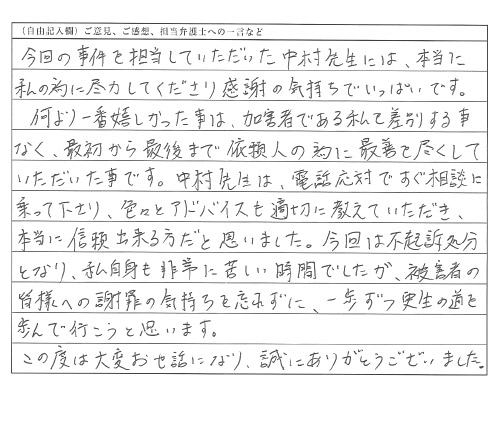 （自由記入欄）ご意見、ご感想、担当弁護士への一言など
今回の事件を担当していただいた中村先生には、本当に
私の為に尽力してくださり感謝の気持ちでいっぱいです。
何より一番嬉しかった事は、加害者である私を差別する事
なく、最初から最後まで依頼人の為に最善を尽くして
いただいた事です。中村先生は、電話応対ですぐ相談に
乗って下さり、色々とアドバイスも適切に教えていただき、
本当に信頼出来る方だと思いました。今回は不起訴処分
となり、私自身も非常に苦しい時間でしたが、被害者の
皆様への謝罪の気持ちを忘れずに、一歩ずつ更生の道を
歩んで行こうと思います。
この度は大変お世話になり、誠にありがとうございました。